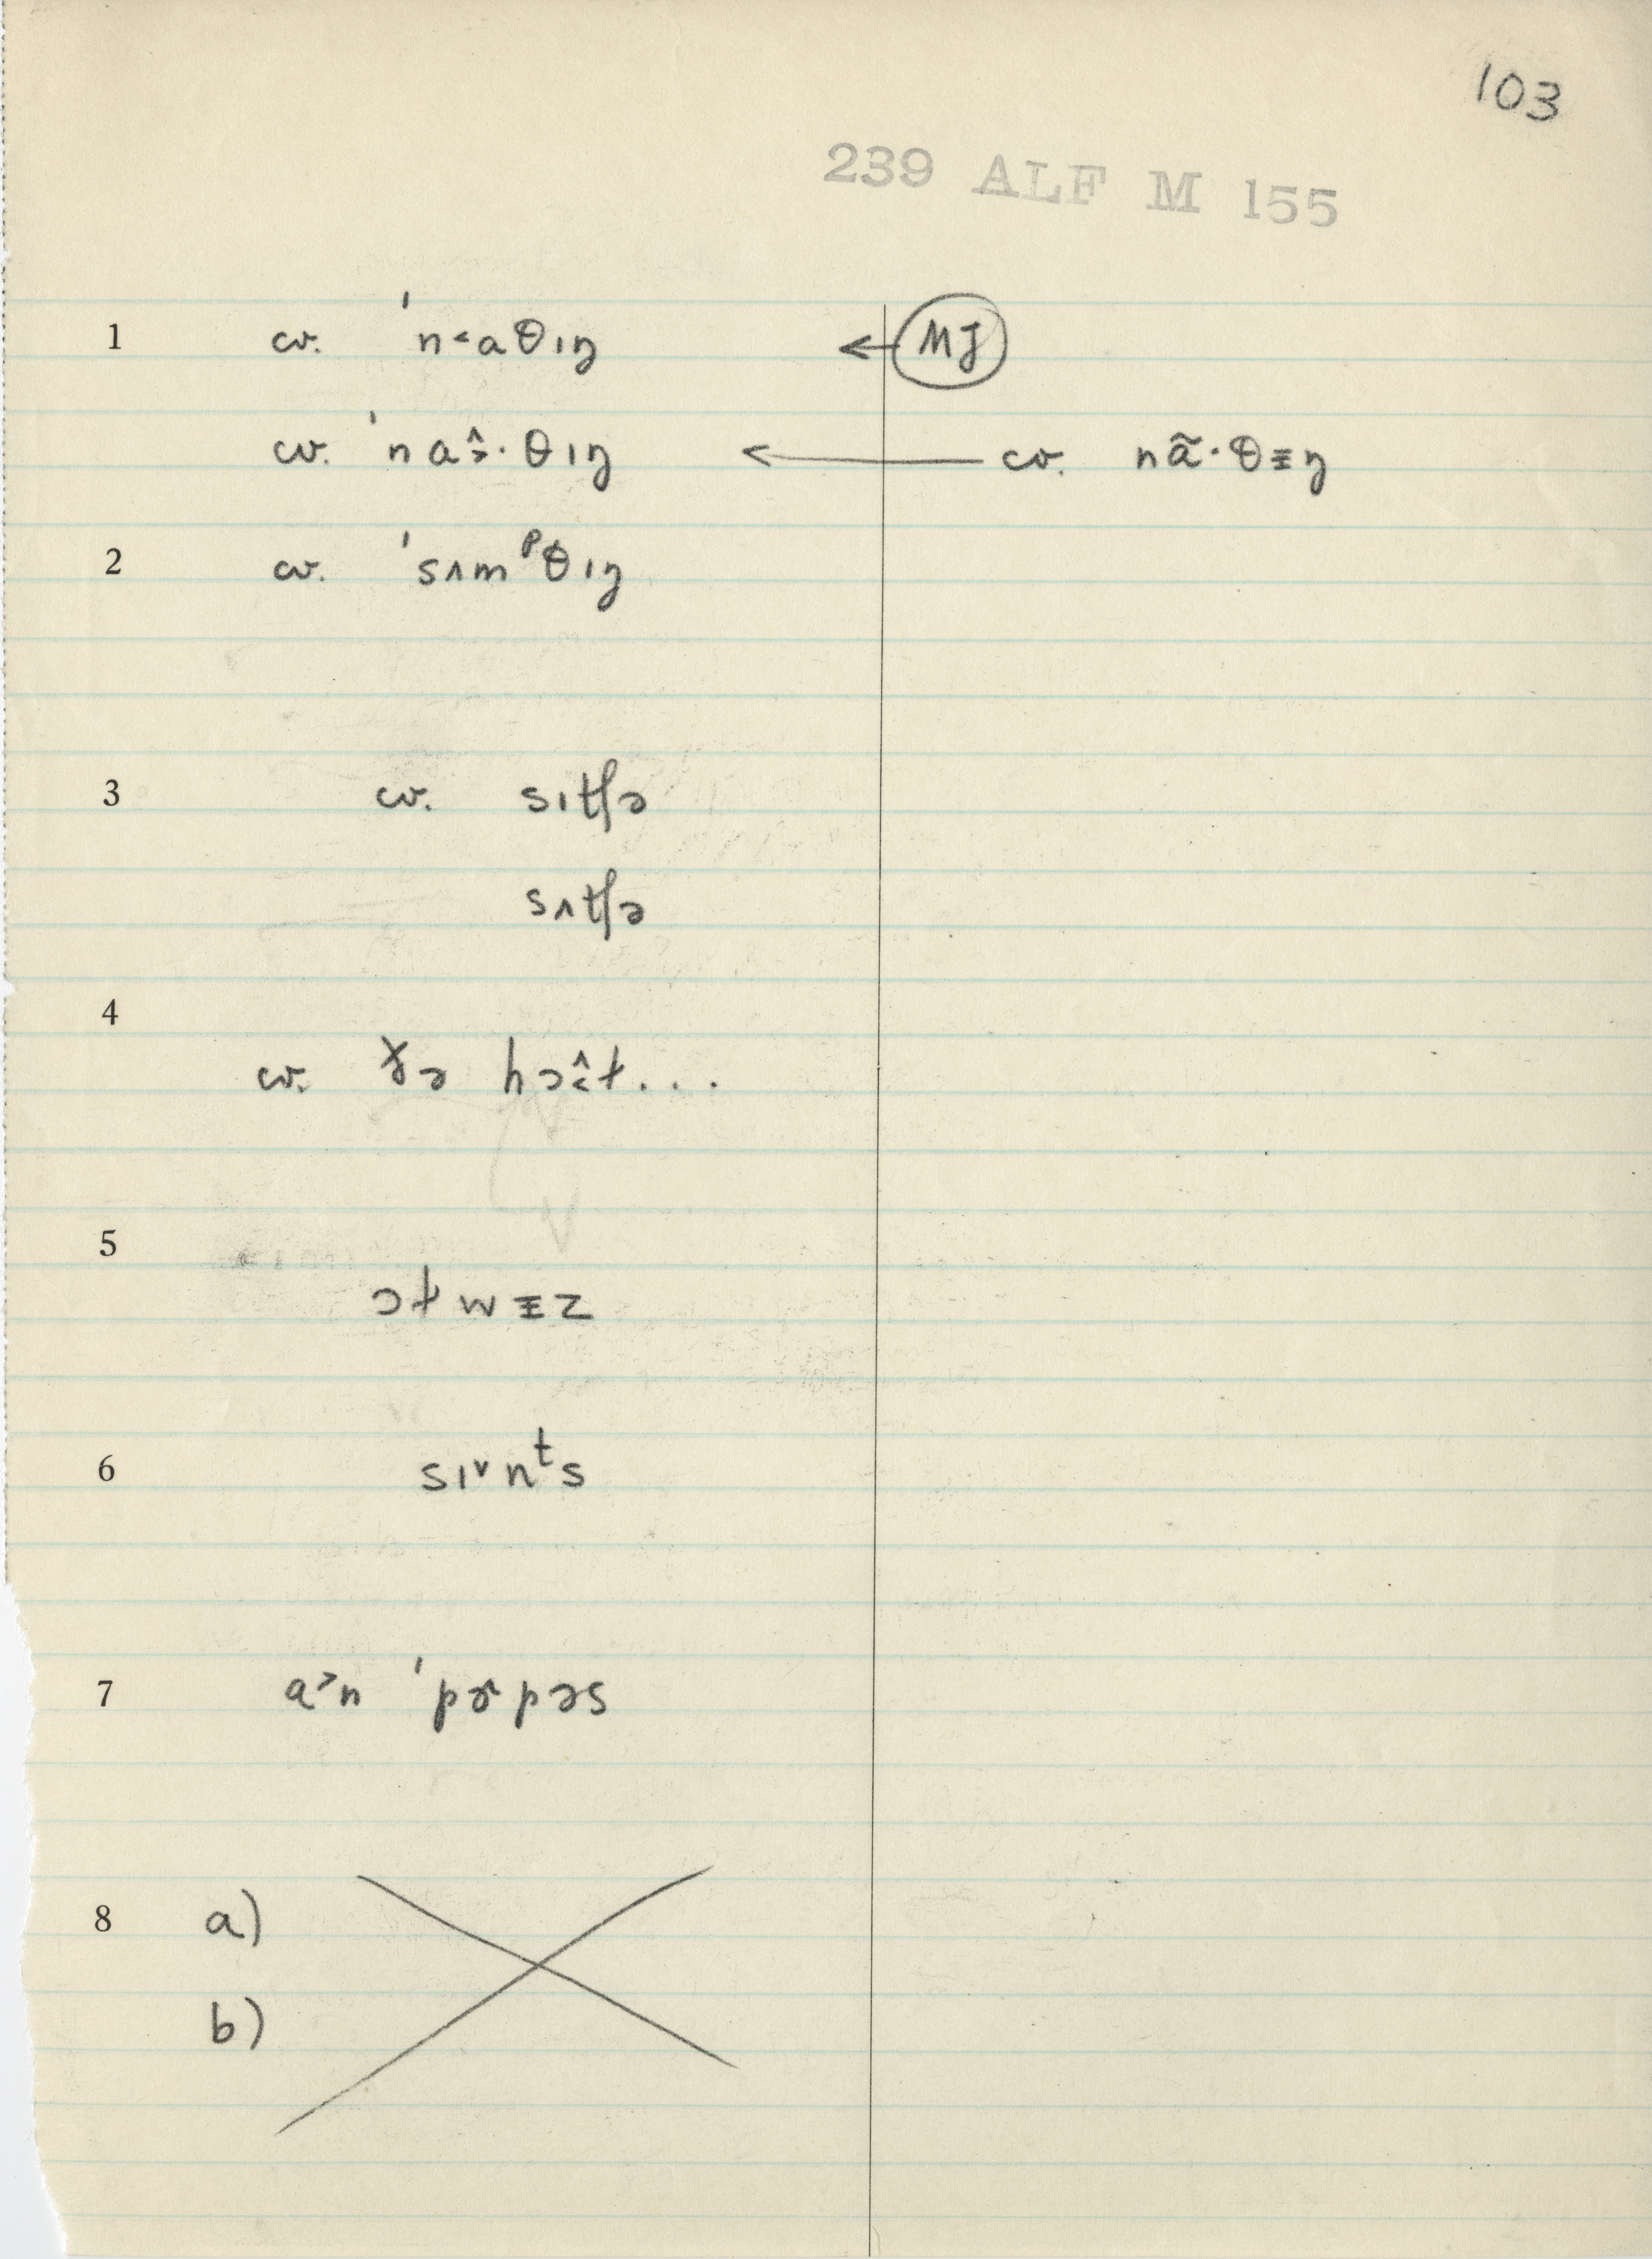 103
239 ALF M 155
1 cv. ˈn˂aθɪŋ ← MJ
cv. ˈna˄˃·θɪŋ ← cv. nã·θɨŋ
2 cv. ˈsʌmᵖθɪŋ
3 cv. sɪtʃə
sʌtʃə
4 cv. ðə hɔ˄˂ɫ...
5 ɔɫwɨz
6 sɪ˅nᵗs
7 a˃n ˈpɚpəs
8 a)
b)